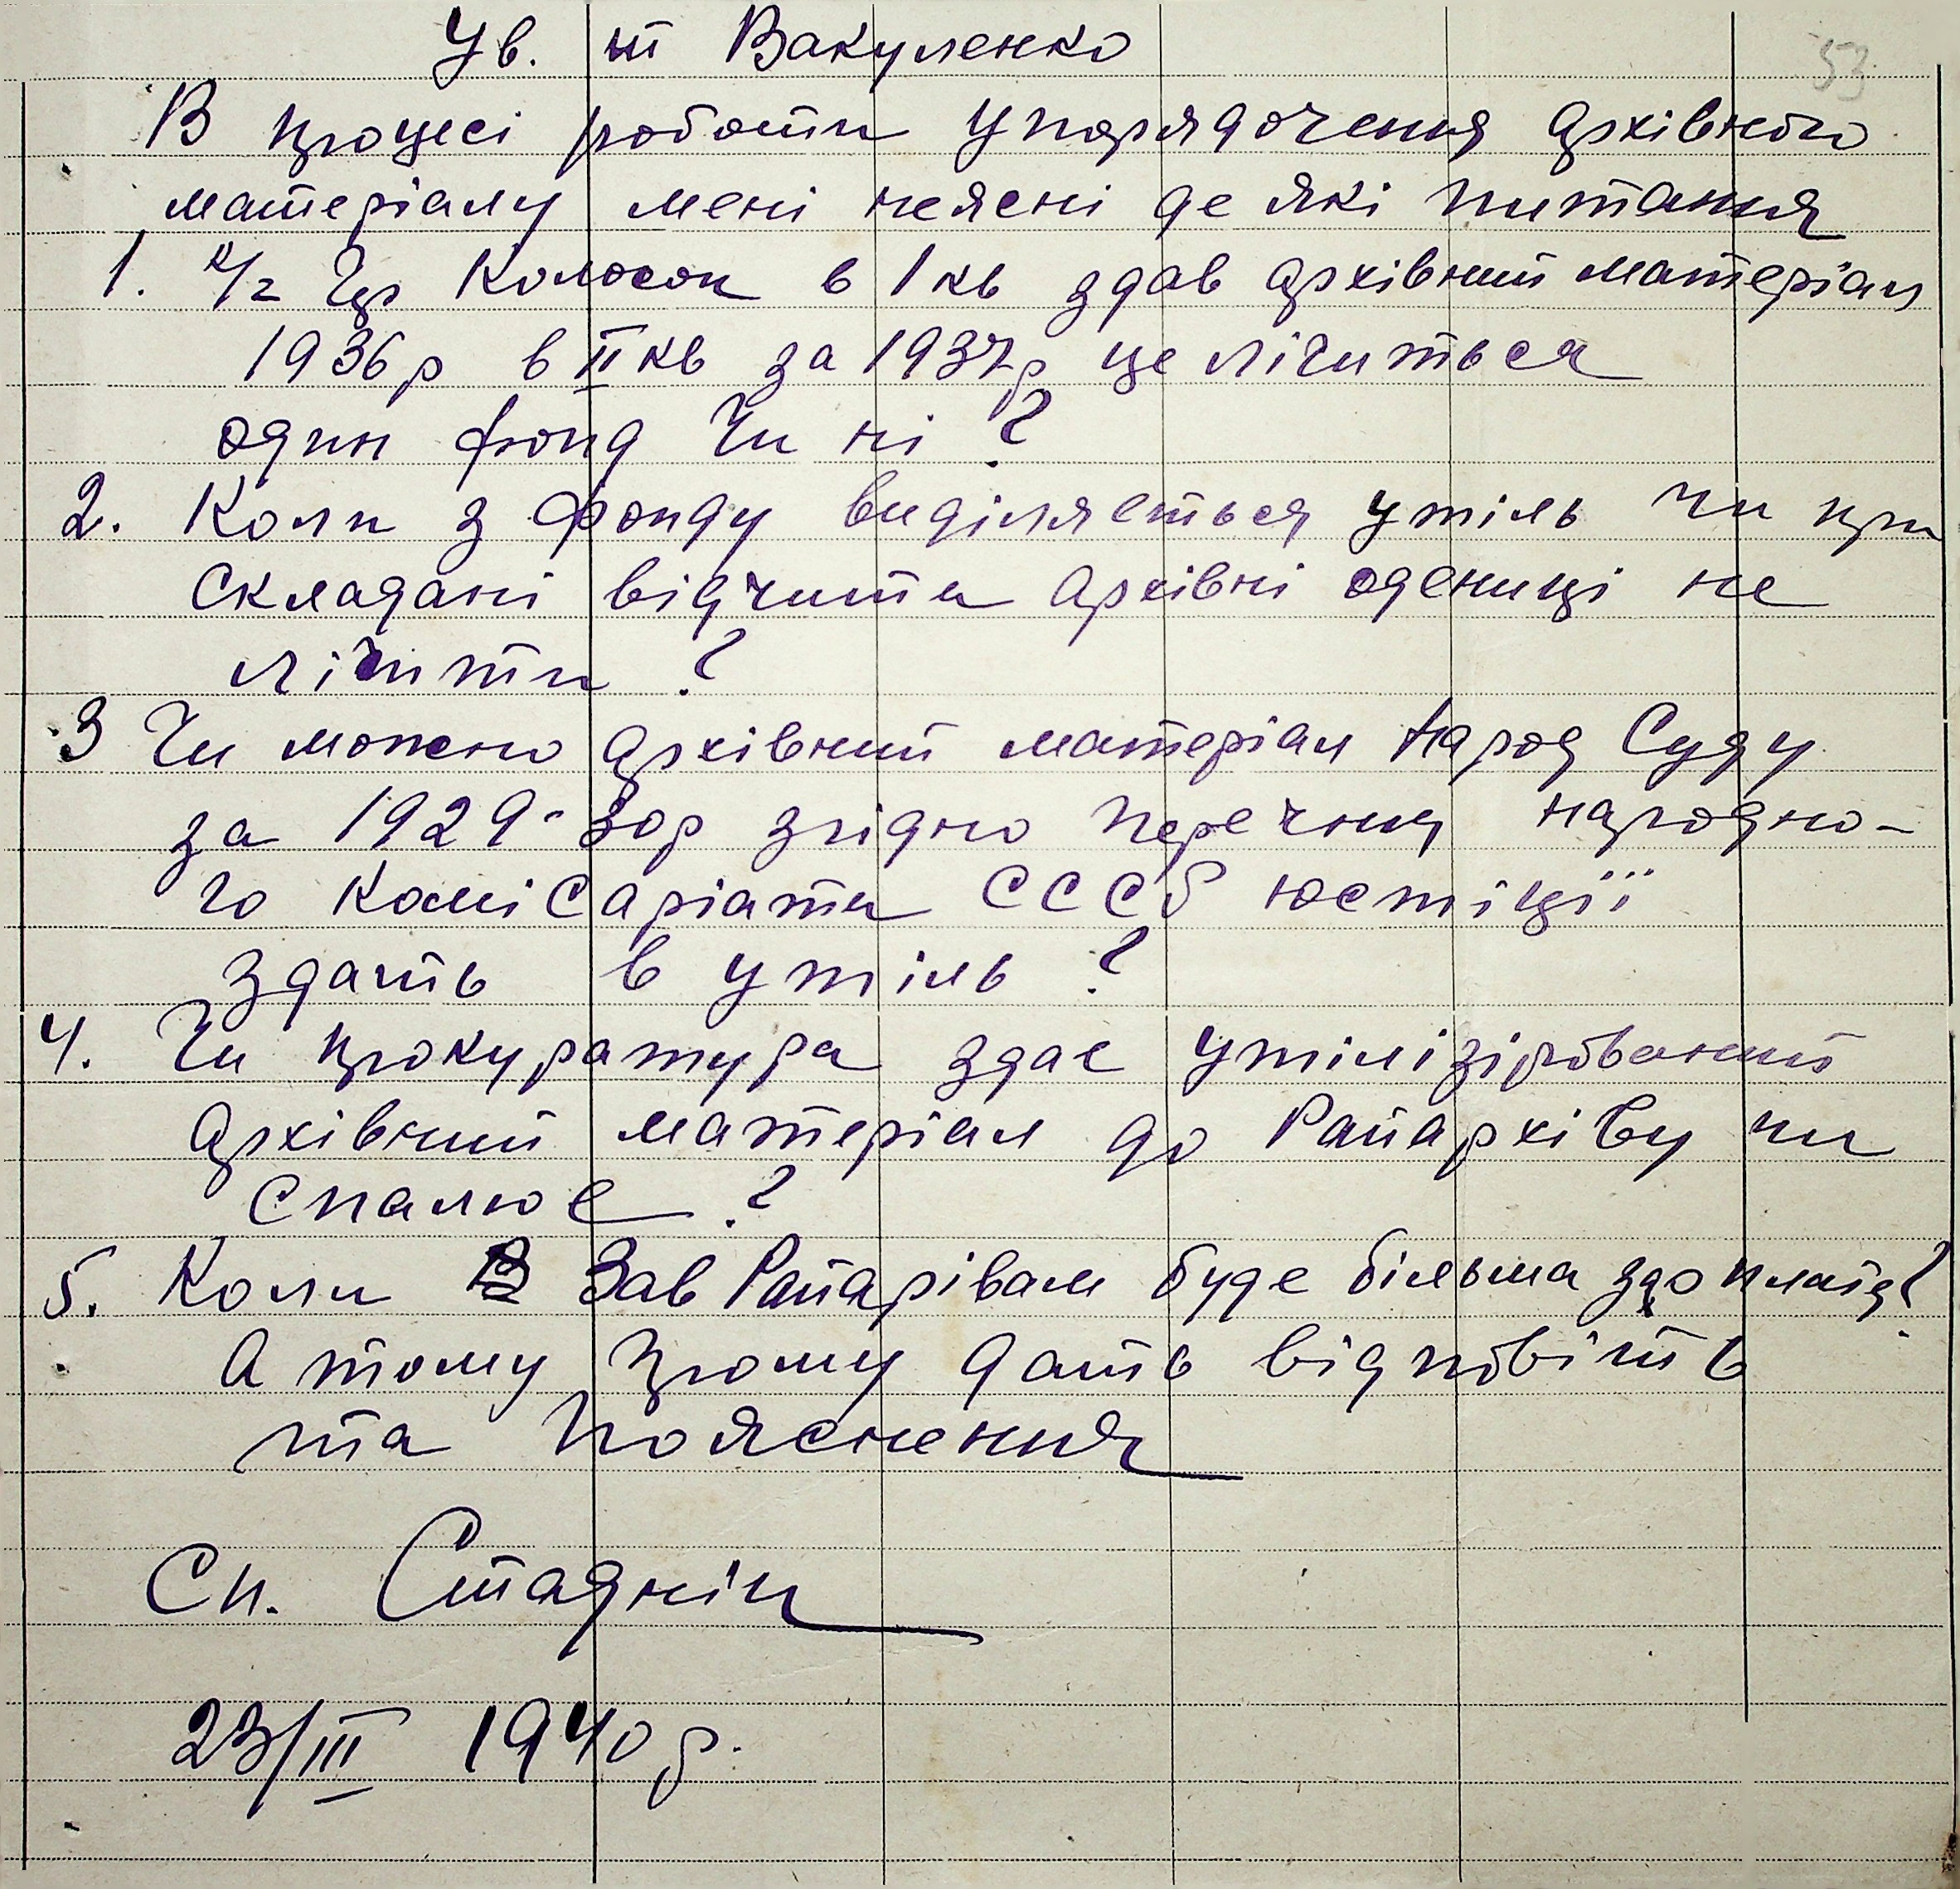 53
Ув. т Вакуленко
В процесі роботи упорядочення архівного
матеріалу мені неясні де які питання
1. к/г Чр Колосок в 1 кв здав архівний матеріал
1936 р в II кв за 1937 р це лічиться
один фонд Чи ні ?
2. Коли з фонду виділяеться утіль чи при
складані відчита архівні одениці не
лічити ?
3 Чи можно архівний матеріал Народ Суду
за 1929-30 р згідно перечня народно-
го комісаріати СССР юстіції
здать в утіль ?
4. Чи прокуратура здає утілізірований
архівний матеріал до Райархіву чи
спалює ?
5. Коли Зав Райарівам буде більша зарплата?
А тому прошу дать відповіть
та пояснення
Сп. Стаднік
23/III 1940 р.